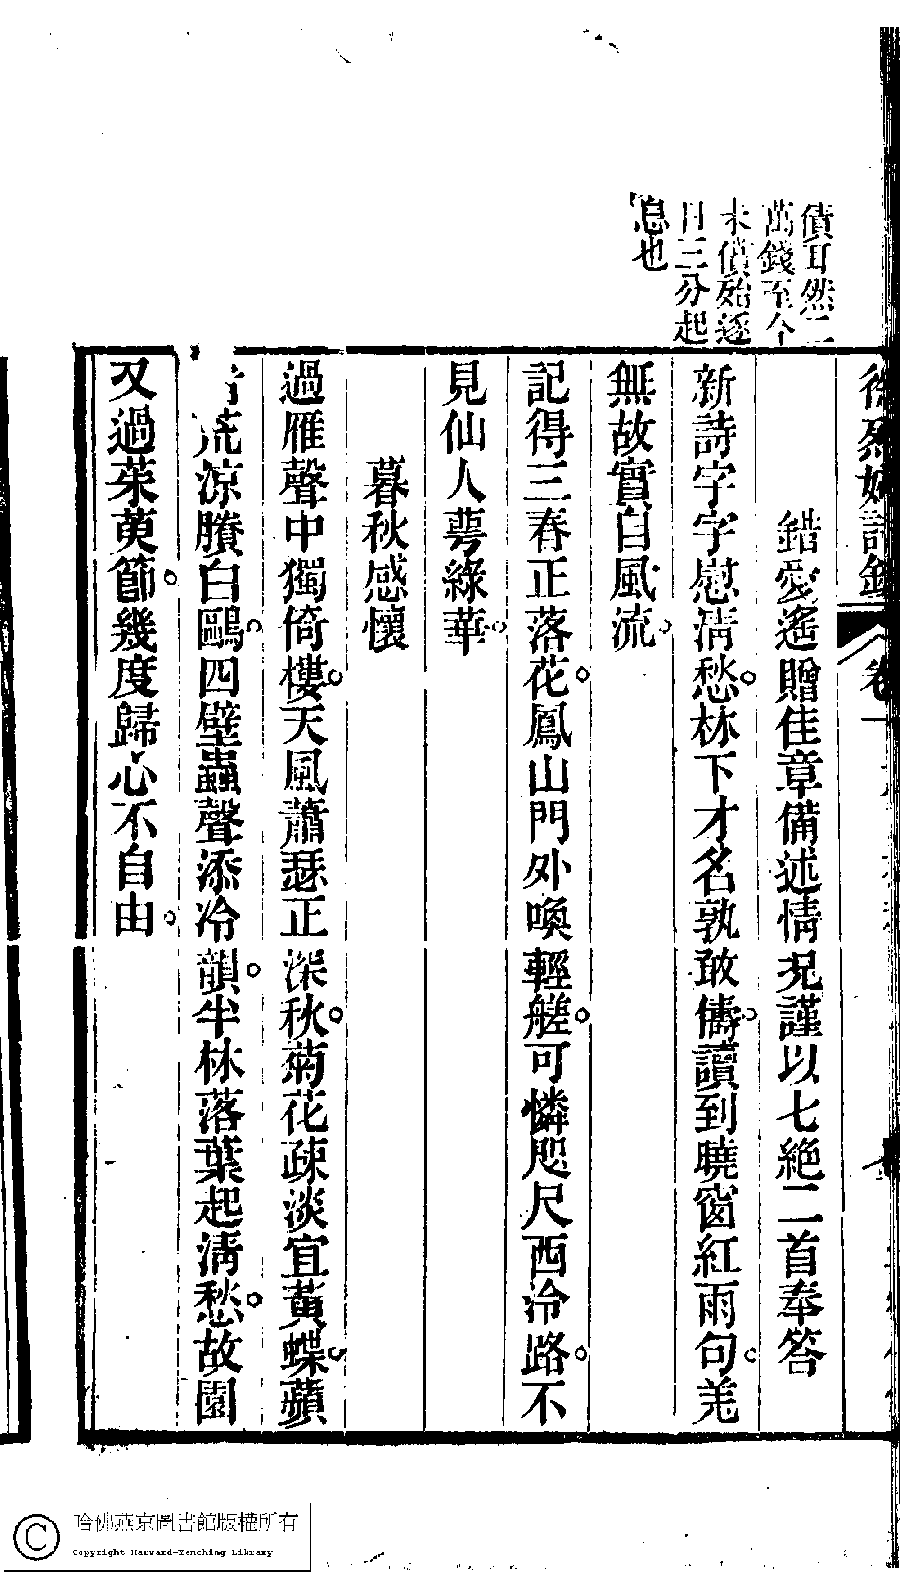 債耳然二
萬錢至今
未償殆逐
日三分起
息也
徐烈婦詩鈔 卷一
錯愛遙贈佳章備述情況謹以七絶二首奉答
新詩字字慰清愁林下才名孰敢儔讀到曉窗紅雨句羌
無故實自風流
記得三春正落花鳳山門外喚輕艖可憐咫尺西泠路不
見仙人萼綠華
暮秋感懷
過雁聲中獨倚樓天風蕭瑟正深秋菊花疎淡宜黃蝶蘋
荒涼賸白鷗四壁蟲聲添冷韻半林落葉起清愁故園
又過茱萸節幾度歸心不自由
哈佛燕京圖書館版權所有
Copyright Harvard-Yenching Library